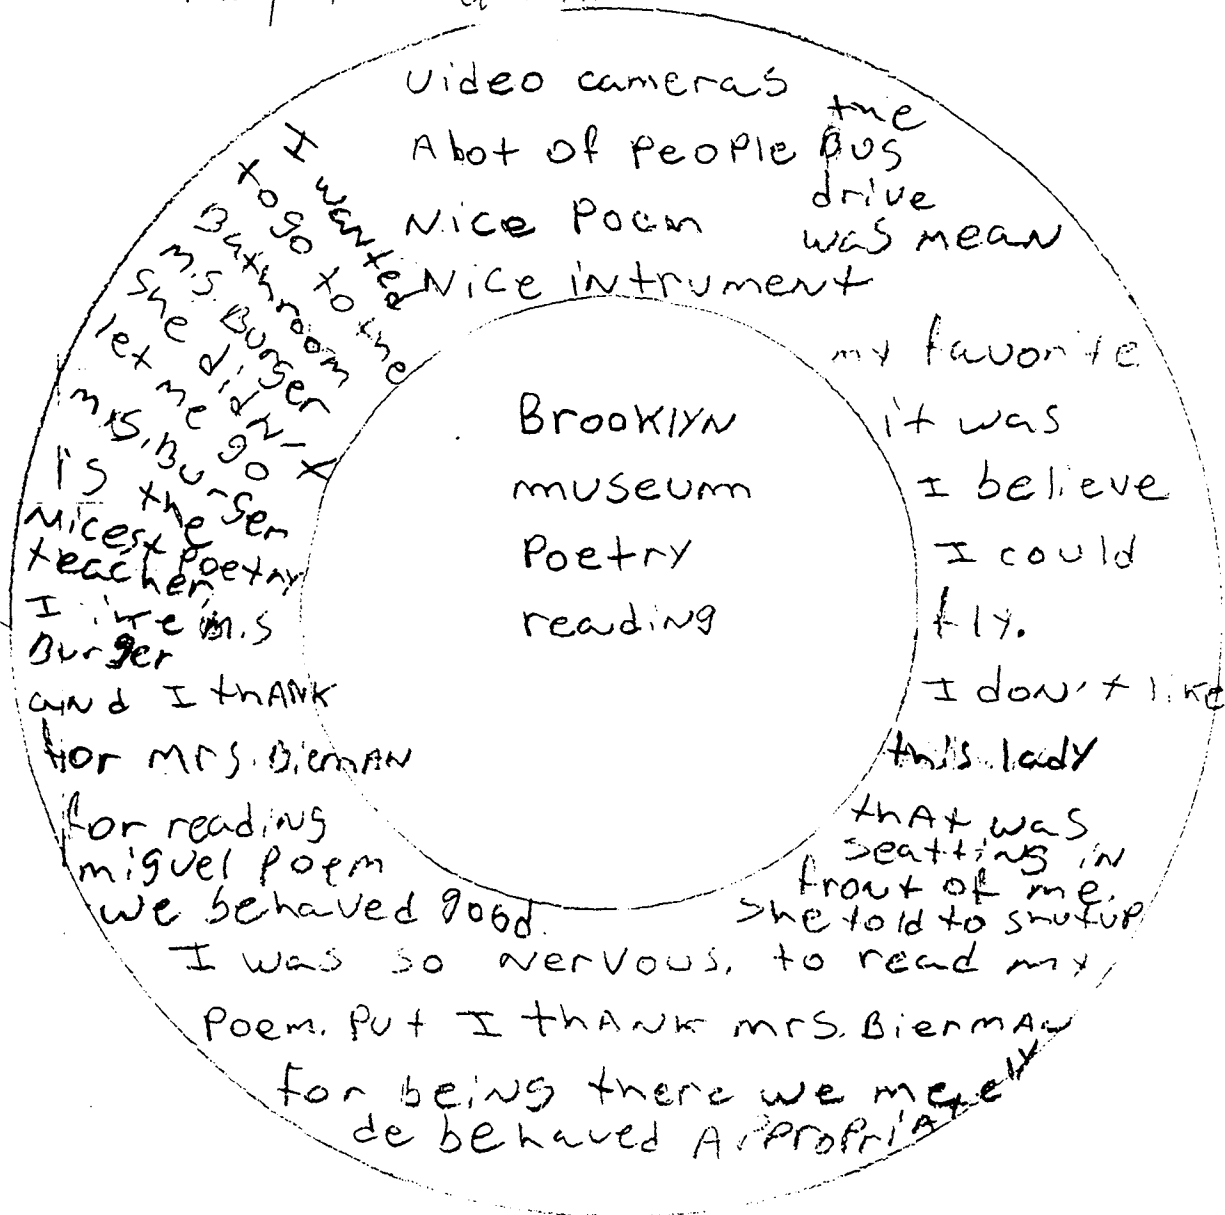 video cameras
A bot of people
Nice Poem
Nice intrument
the
Bus
drive
was mean
my favorite
it was
I believe
I could
fly.
I don't like
this lady
that was
seatting in
front of me.
she told to shutup
I was so nervous. to read my
Poem. Put I thANK mrs. BiermAN
for being there we me
de behaved
I wanted
to go to the
Bathroom
m.s. Burger
she didn't
let me go
mrs. Burger
is the
Nicest Poetry
teacher
I like m.s
Burger
aynd I thANK
for mrs. BiemAN
for reading
miguel poem
we behaved good.
Brooklyn
museum
Poetry
reading